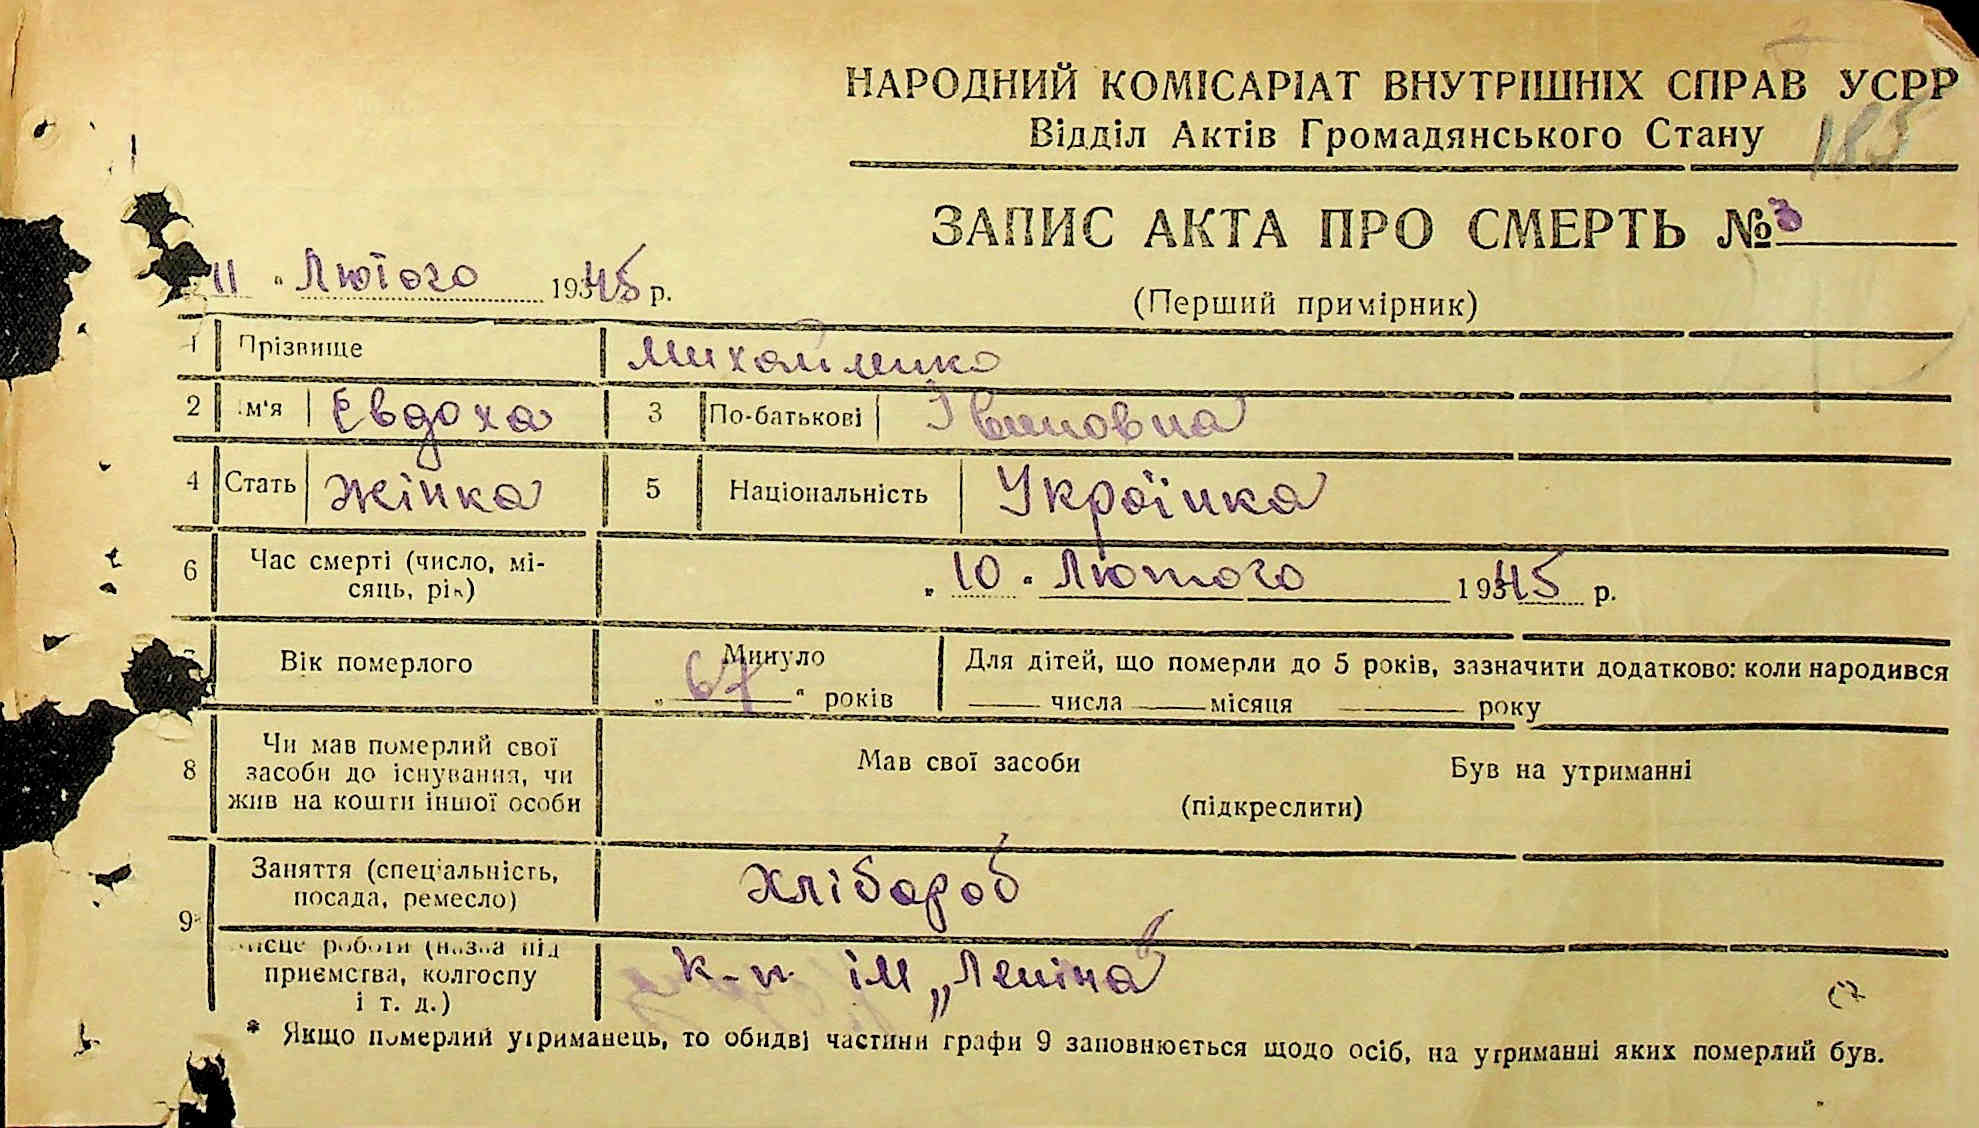 НАРОДНИЙ КОМІСАРІАТ ВНУТРІШНІХ СПРАВ УСРР
Відділ Актів Громадянського Стану 185
ЗАПИС АКТА ПРО СМЕРТЬ № 3
11 " Лютого 1945 р.
(Перший примірник)
1 Прізвище Михайленко
2 Ім'я Евдоха 3 По-батькові Івановна
4 Стать жінка 5 Національність Українка
6 Час смерті (число, мі-
сяць, рік) „ 10 " Лютого 1945 р.
7 Вік померлого Минуло
„ 67 " років
Для дітей, що померли до 5 років, зазначити додатково: коли народився
числа місяця року
8 Чи мав померлий свої
засоби до існування, чи
жив на кошти іншої особи
Мав свої засоби Був на утриманні
(підкреслити)
9* Заняття (спеціальність,
посада, ремесло) Хлібороб
Місце роботи (назва під
приємства, колгоспу
і т. д.) к-п. ім „Леніна"
* Якщо померлий утриманець, то обидві частини графи 9 заповнюється щодо осіб, на утриманні яких померлий був.